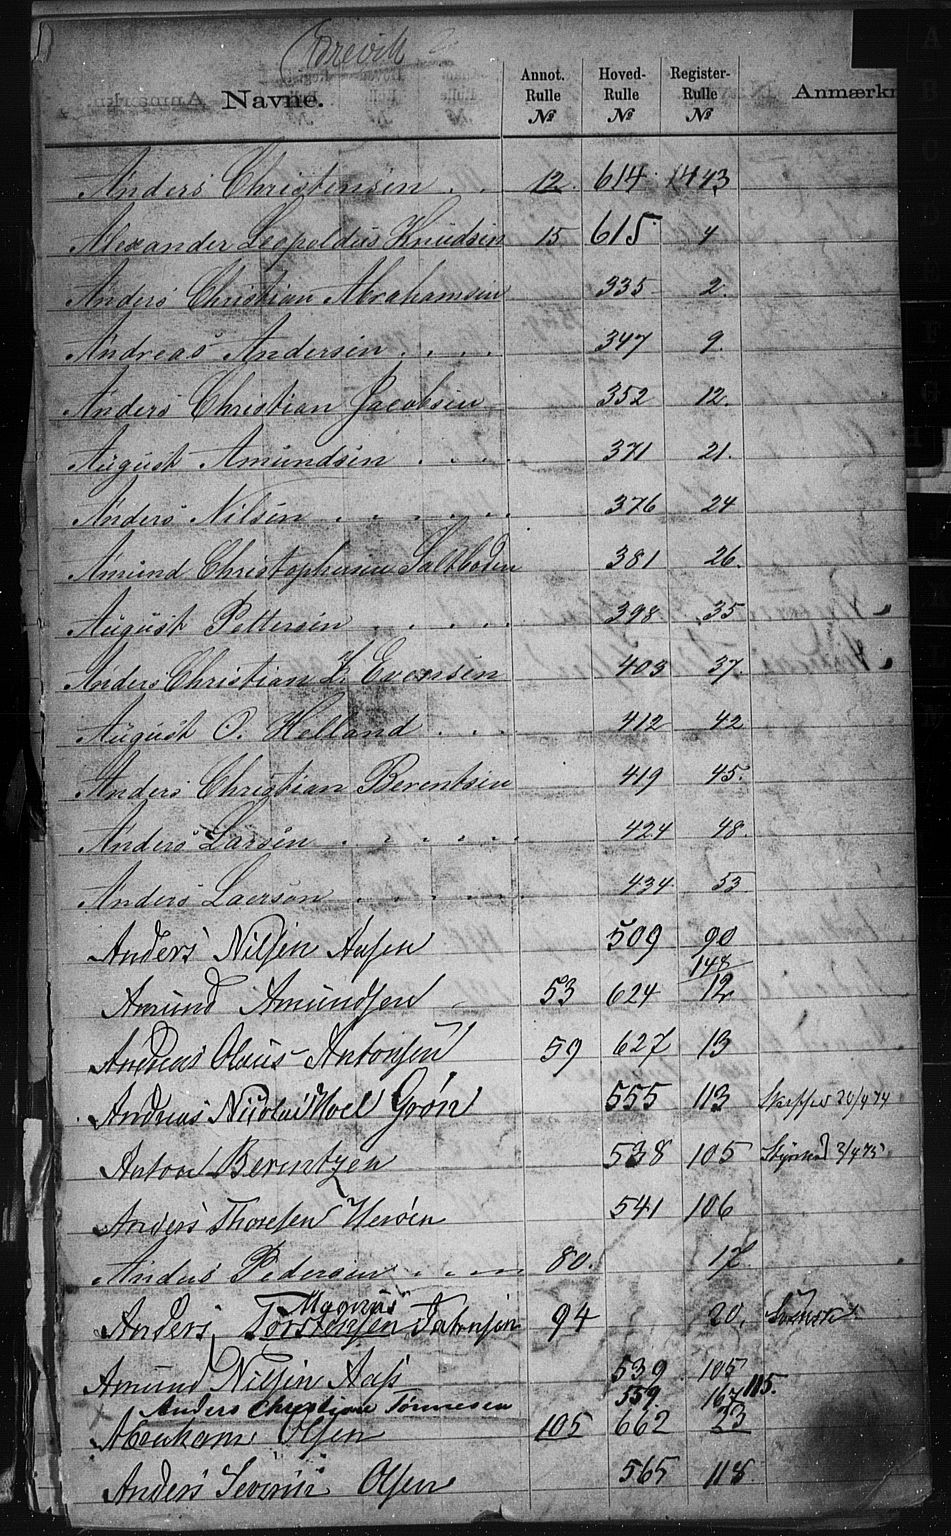 Brevik
Navne. Annot. Rulle № Hoved-Rulle № Register-Rulle № Anmærkn
Anders Christensen . . 12. 614. 1443
Alexander Leopoldus Knudsen 15 615 4
Anders Christian Abrahamsen 335 2.
Andreas Andersen . . . . 347 9.
Anders Christian Jacobsen 352 12.
August Amundsen . . . . 371 21.
Anders Nilsen . . . . . . 376 24
Amund Christophersen Saltboden 381 26.
August Pettersen . . . . . 398 35
Anders Christian K. Evensen 403 37.
August O. Helland . . . 412 42
Anders Christian Berentsen 419 45.
Anders Larsen . . . . . 424 48.
Anders Laerson . . . . . 434 53
Anders Nilsen Aasen 509 90
Amund Amundsen 53 624 148/12
Andreas Olaus Antonsen 59 627 13
Andreas Nicolai Moel Grøn 555 113 Skipper 20/4 74
Anton Berentzen 538 105 Styrmd 3/4 75
Anders Thoresen Herøen 541 106
Anders Pedersen . . . . 80. 17
Magnus
Anders, Torstensen 94 20.
Amund Nilsen Aas 539 105
Anders Christian Tønnesen 559. 167 115.
Abraham Olsen 105 662 23
Anders Severin Olsen 565 118